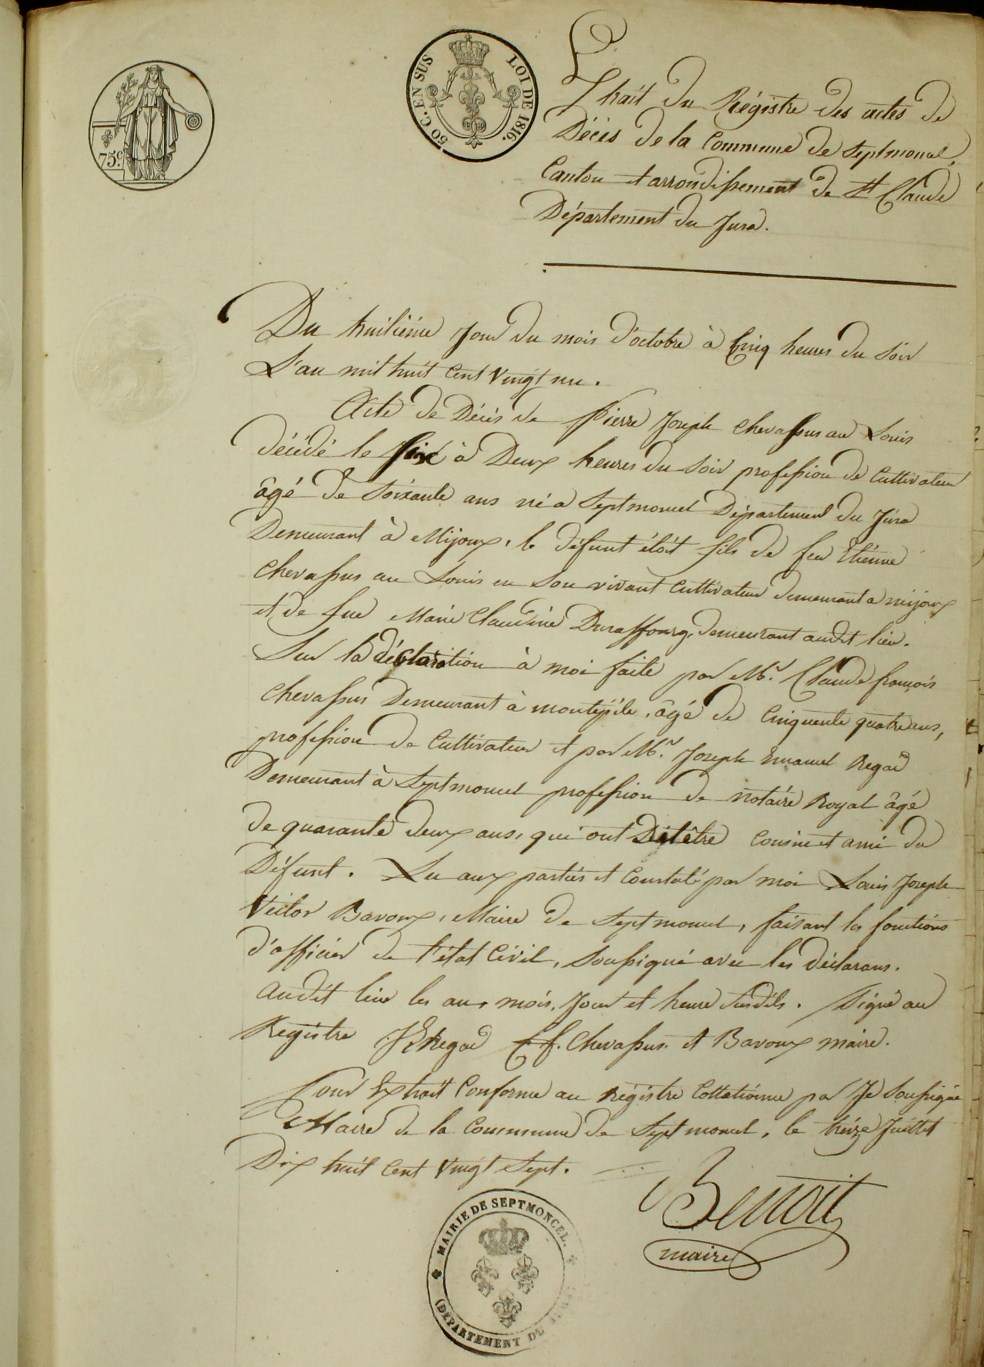 75c
50 C. EN SUS
LOI DE 1816.
Extrait du Régistre des actes de
Décès de la Commune de Septmoncel,
Canton et arrondissement de St Claude
Département du Jura.
Du huitième jour du mois d'octobre à Cinq heures du Soir
L'an mil huit Cent Vingt un.
Acte de Décès de Pierre Joseph Chevassus au Louis
décédé le Six à Deux heures du soir profession de Cultivateur
âgé de Soixante ans né a Septmoncel Département du Jura
Demeurant à Mijoux, le défunt étoit fils de feu Etienne
Chevassus au Louis en Son vivant Cultivateur demeurant a mijoux
et de fue Marie Claudine Duraffourg, demeurant audit lieu.
Sur la déclaration à moi faite par Mr. Claude françois
Chevassus Demeurant à montépile, âgé de Cinquente quatre ans,
profession de Cultivateur et par Mr. Joseph Emanuel Regad
Demeurant à Septmoncel profession de notaire Royal âgé
de quarante deux ans, qui ont Dit être Cousin et ami du
Défunt. Lu aux parties et Constaté par moi Louis Joseph
Victor Bavoux, Maire de Septmoncel, faisant les fonctions
d'officier de l'état Civil, Soussigné avec les déclarans.
Audit lieu les an, mois, Jour et heure Susdits. Signé au
Registre JE Regad C. f. Chevassus et Bavoux maire.
Pour Extrait Conforme au Régistre Collationné par Je Soussigné
Maire de la Commune de Septmoncel, le treize Juillet
Dix huit Cent Vingt Sept.
Benoit
maire
MAIRIE DE SEPTMONCEL.
(DEPARTEMENT DU